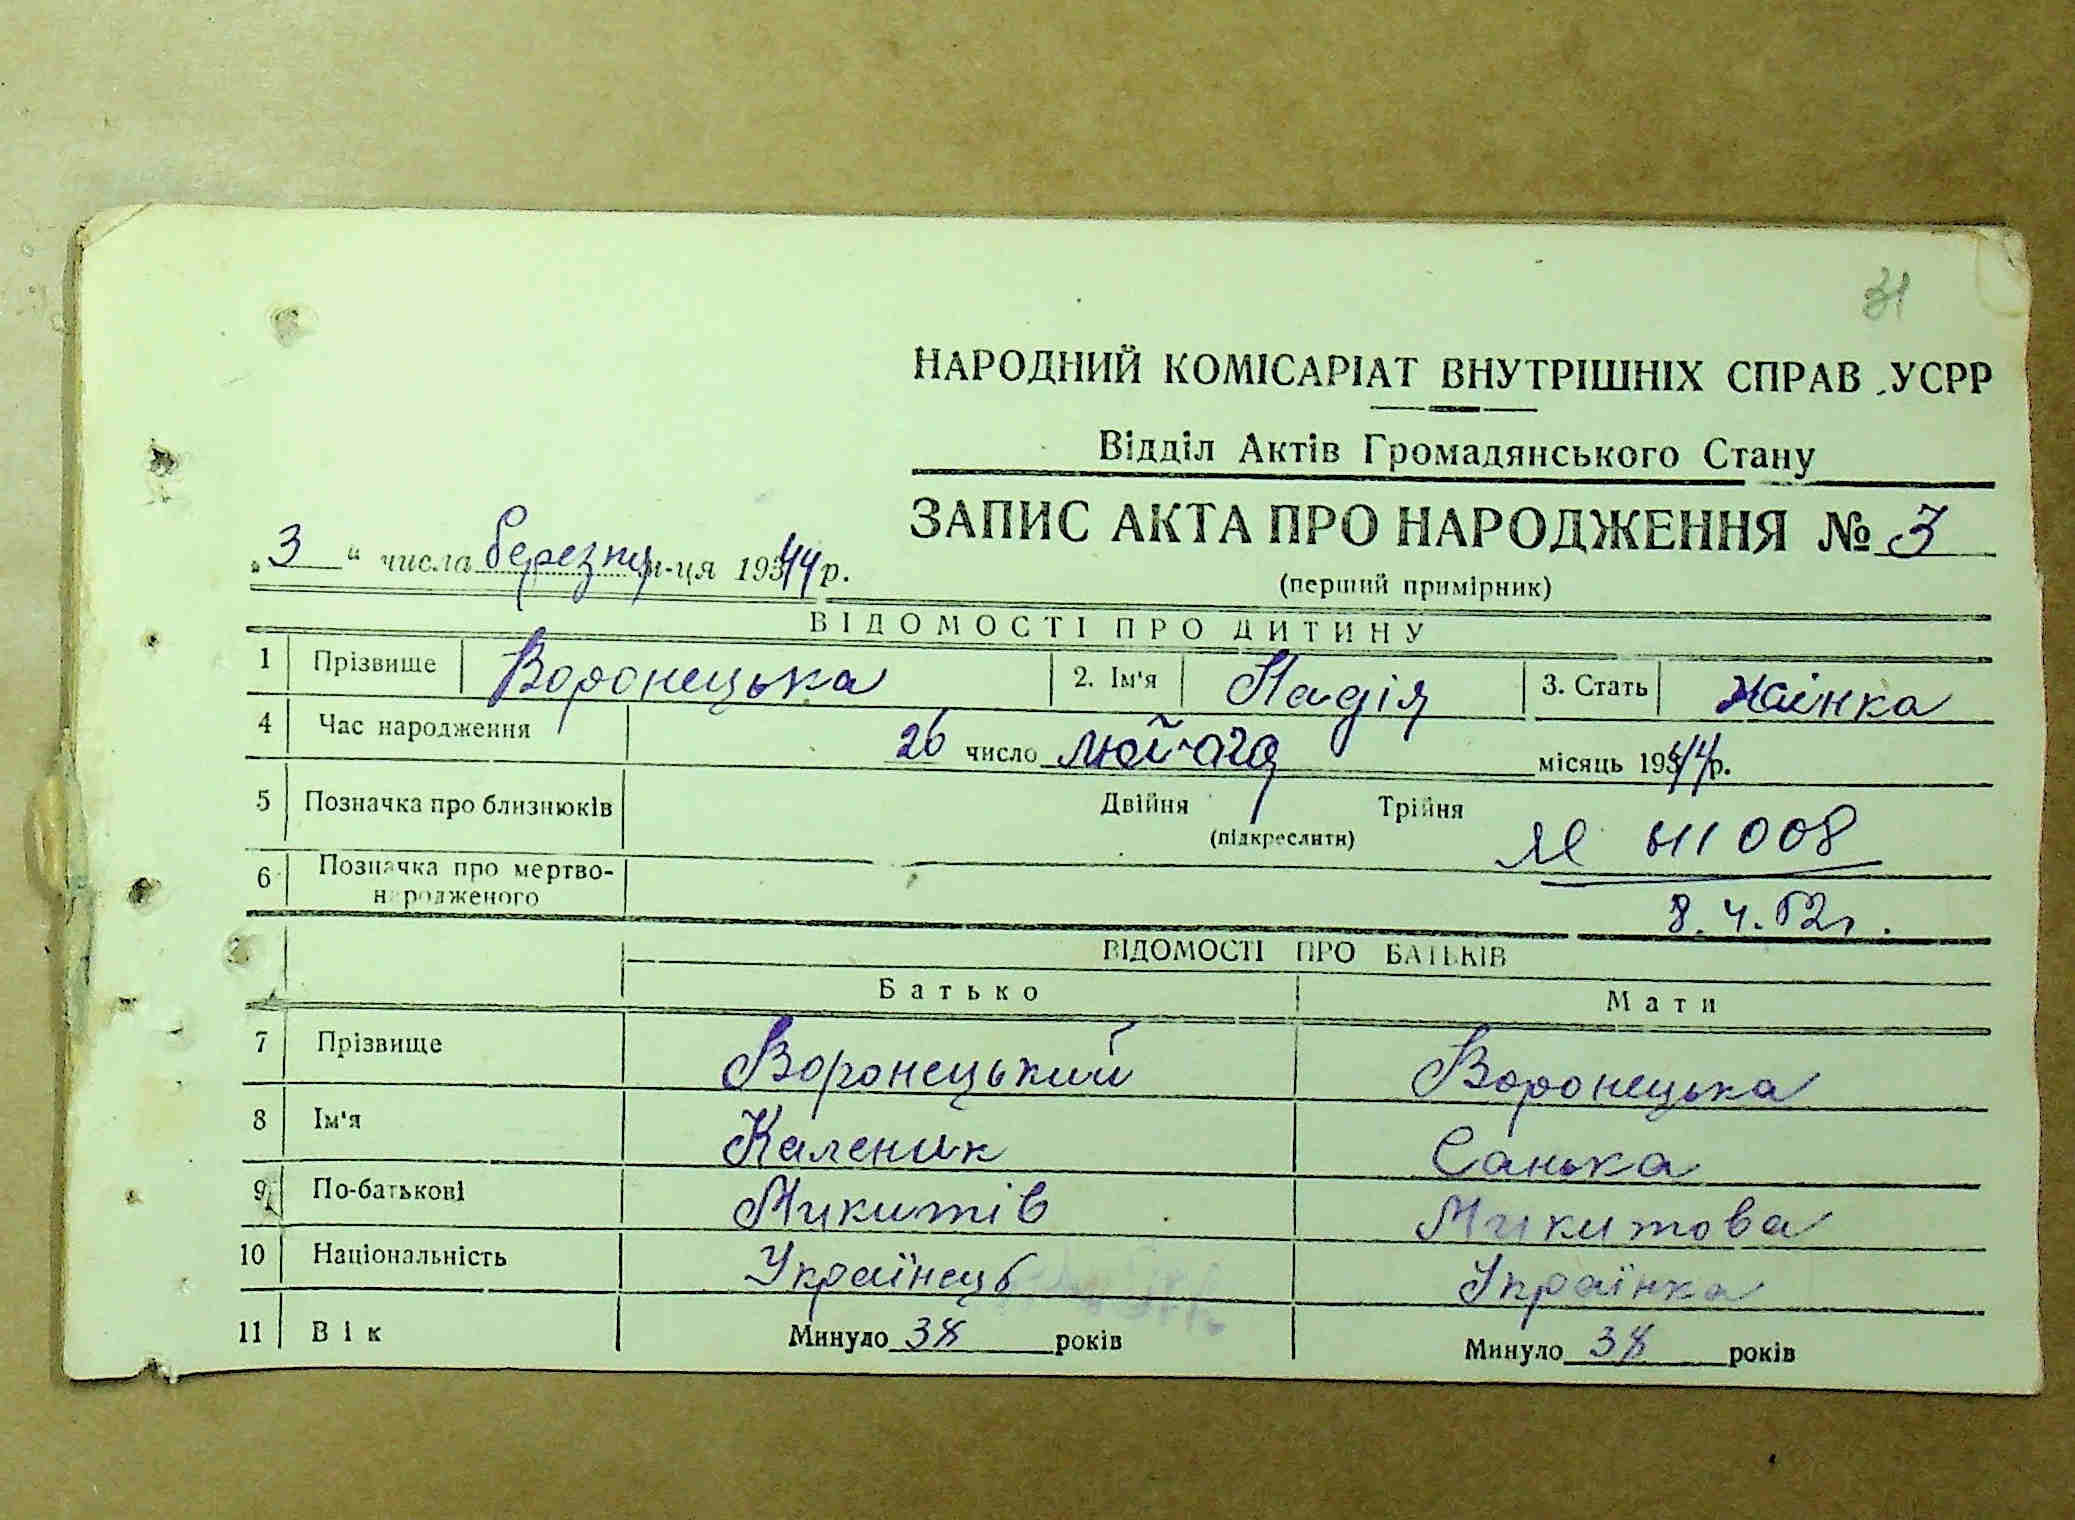 31
НАРОДНИЙ КОМІСАРІАТ ВНУТРІШНІХ СПРАВ УСРР
Відділ Актів Громадянського Стану
ЗАПИС АКТА ПРО НАРОДЖЕННЯ № 3
„3" числа березня м-ця 1944 р.
(перший примірник)
ВІДОМОСТІ ПРО ДИТИНУ
1 Прізвище Воронецька 2. Ім'я Надія 3. Стать жінка
4 Час народження 26 число місяць 1944 р.
5 Позначка про близнюків Двійня Трійня
(підкреслити)
008
6 Позначка про мертво-
народженого
8.4.52г.
ВІДОМОСТІ ПРО БАТЬКІВ
Батько Мати
7 Прізвище Воронецький Воронецька
8 Ім'я Каленик Санька
9 По-батькові Микитів Микитова
10 Національність Українець Українка
11 Вік Минуло 38 років Минуло 38 років